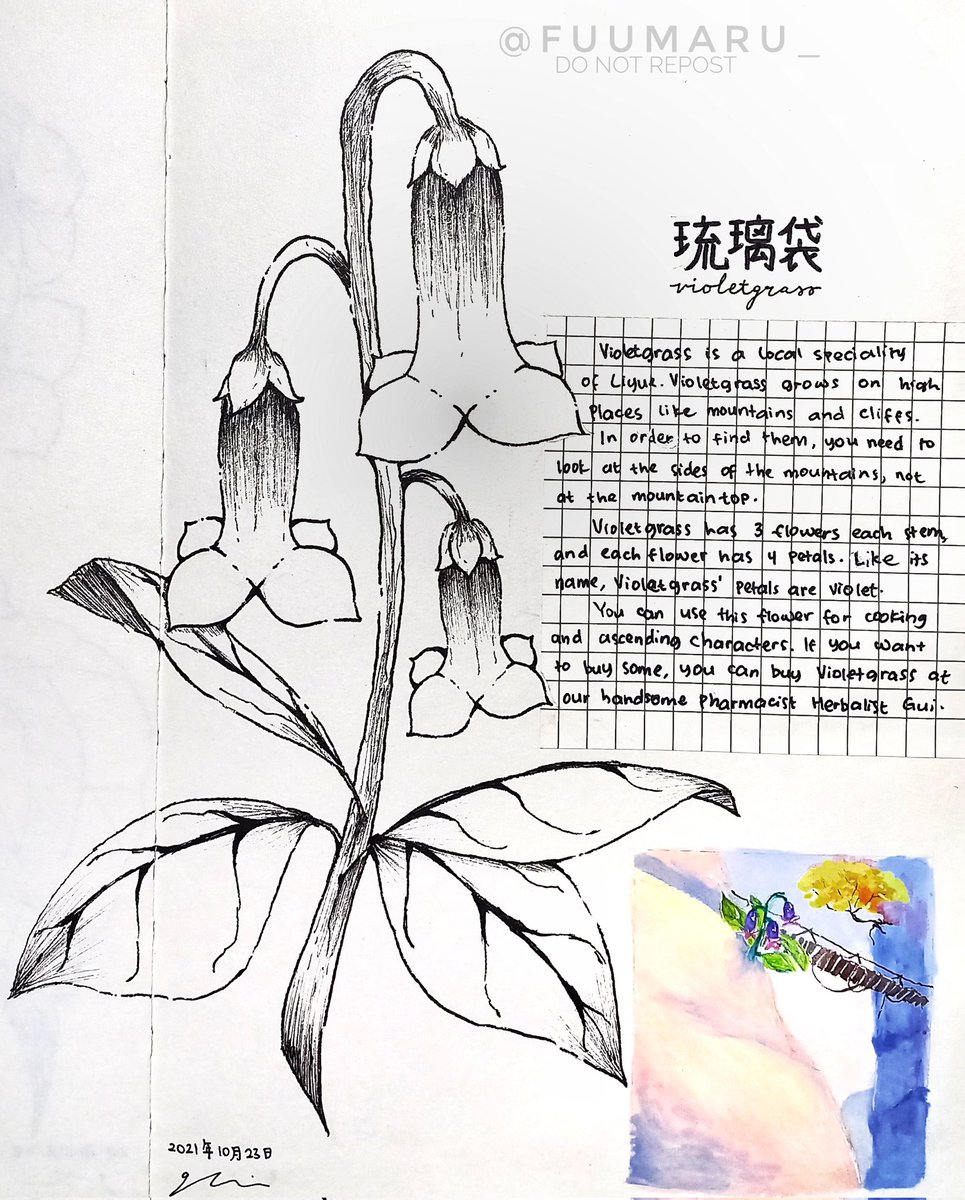 @FUUMARU_
DO NOT REPOST
琉璃袋
violetgrass
Violetgrass is a local speciality
of Liyue. Violetgrass grows on high
places like mountains and cliffs.
In order to find them, you need to
look at the sides of the mountains, not
at the mountaintop.
Violetgrass has 3 flowers each stem,
and each flower has 4 petals. Like its
name, Violetgrass' petals are violet.
You can use this flower for cooking
and ascending characters. If you want
to buy some, you can buy Violetgrass at
our handsome pharmacist Herbalist Gui.
2021年10月23日